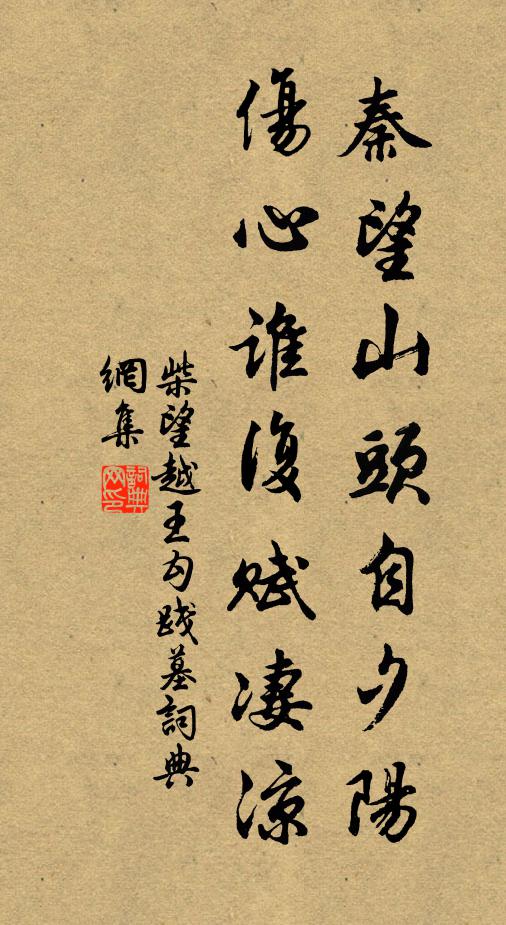 秦望山頭自夕陽
傷心誰復賦淒涼
柴望越王勾踐墓詞典
網集
詞典網印